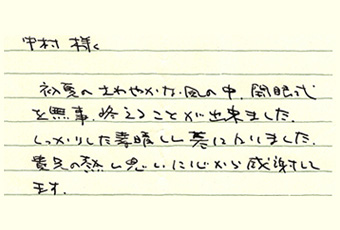 中村 様
初夏のさわやかな風の中、開眼式
を無事、終えることが出来ました。
しっかりした素晴しい墓になりました。
貴兄の熱い思いに心から感謝して
ます。